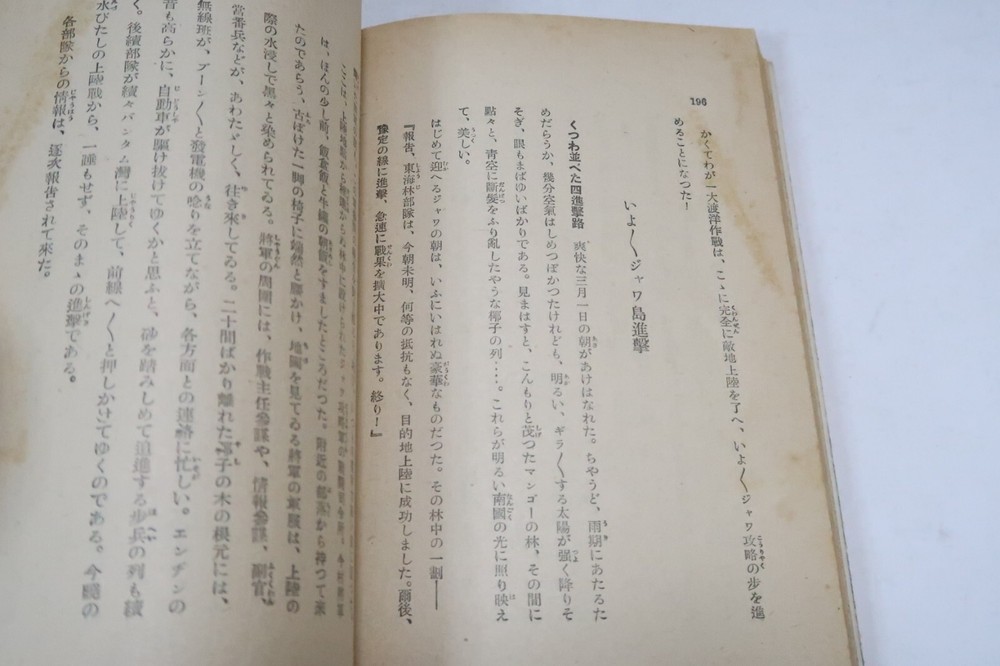 196
かくてわが一大渡洋作戰は、こゝに完全に敵地上陸を了へ、いよ〳〵ジャワ攻略の步を進
めることになつた！
いよ〳〵ジャワ島進擊
くつわ並べた四進擊路 爽快な三月一日の朝があけはなれた。ちやうど、雨期にあたるた
めだらうか、幾分空氣はしめつぽかつたけれども、明るい、ギラ〳〵する太陽が强く降りそ
そぎ、眼もまばゆいばかりである。見まはすと、こんもりと茂つたマンゴーの林、その間に
點々と、靑空に斷髮をふり亂したやうな椰子の列‥‥。これらが明るい南國の光に照り映え
て、美しい。
はじめて迎へるジャワの朝は、いふにいはれぬ豪華なものだつた。その林中の一劃――
『報吿、東海林部隊は、今朝未明、何等の抵抗もなく、目的地上陸に成功しました。爾後、
豫定の線に進擊、急速に戰果を擴大中であります。終り！』
は、ほんの少し前、飯盒飯と牛罐の朝餐をすましたところだつた。附近の部落から持つて來
たのであらう、古ぼけた一脚の椅子に端然と腰かけ、地圖を見てゐる將軍の軍服は、上陸の
際の水浸しで黑々と染められてゐる。將軍の周圍には、作戰主任參謀や、情報參謀、副官、
當番兵などが、あわたゞしく、往き來してゐる。二十間ばかり離れた椰子の木の根元には、
無線班が、ブーン〳〵と發電機の唸りを立てながら、各方面との連絡に忙しい。エンヂンの
音も高らかに、自動車が驅け拔けてゆくかと思ふと、砂を踏みしめて追進する步兵の列も續
く。後續部隊が續々バンタム灣に上陸して、前線へ〳〵と押しかけてゆくのである。今曉の
水びたしの上陸戰から、一睡もせず、そのまゝの進擊である。
各部隊からの情報は、逐次報吿されて來た。